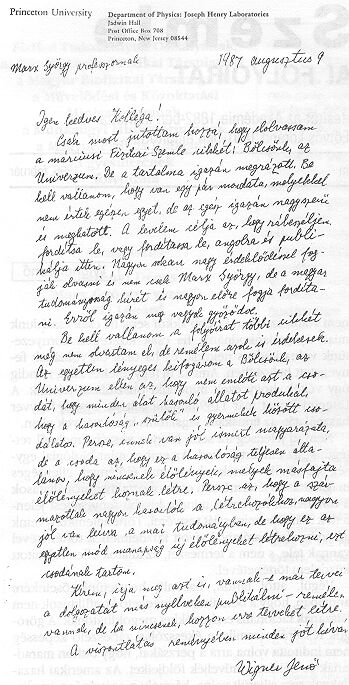 Princeton University
Department of Physics: Joseph Henry Laboratories
Jadwin Hall
Post Office Box 708
Princeton, New Jersey 08544
Marx György professzornak
1987 augusztus 9
Igen kedves Kolléga!
Csak most jutottam hozzá, hogy elolvassam
a márciusi Fizikai Szemle cikkét: Bölcsőnk, az
Univerzum. De a tartalma igazán megrázott. Be
kell vallanom, hogy van egy pár mondata, melyekkel
nem értek egészen egyet, de az egész igazán nagyszerű
és meghatott. A levelem célja az, hogy rábeszéljem,
fordítsa le, vagy fordíttassa le, angolra és publi-
kálja itten. Nagyon sokan nagy érdeklődéssel fog-
ják olvasni és nem csak Marx György, de a magyar
tudományosság hírét is nagyon előre fogja fordíta-
ni. Erről igazán meg vagyok győződve.
Be kell vallanom a folyóirat többi cikkét
még nem olvastam el, de remélem azok is érdekesek.
Az egyetlen lényeges kifogásom a Bölcsőnk, az
Univerzum ellen az, hogy nem említi azt a cso-
dát, hogy minden állat hasonló állatot produkál,
hogy a hasonlóság "szülők" és gyermekek között cso-
dálatos. Persze, ennek van jól ismert magyarázata,
de a csoda az, hogy ez a hasonlóság teljesen álta-
lános, hogy nincsenek élőlények, melyek másfajta
élőlényeket hoznak létre. Persze az, hogy a szár-
mazottak nagyon hasonlók a létrehozóikhoz, nagyon
jól van leírva a mai tudományban, de hogy ez az
egyetlen mód manapság új élőlényeket létrehozni, ezt
csodának tartom.
Kérem, írja meg azt is, vannak-e mai tervei
a dolgozatát más nyelveken publikálni - remélem
vannak, de ha nincsenek, hozzon erre terveket létre.
A viszontlátás reményében minden jót kíván
Wigner Jenő